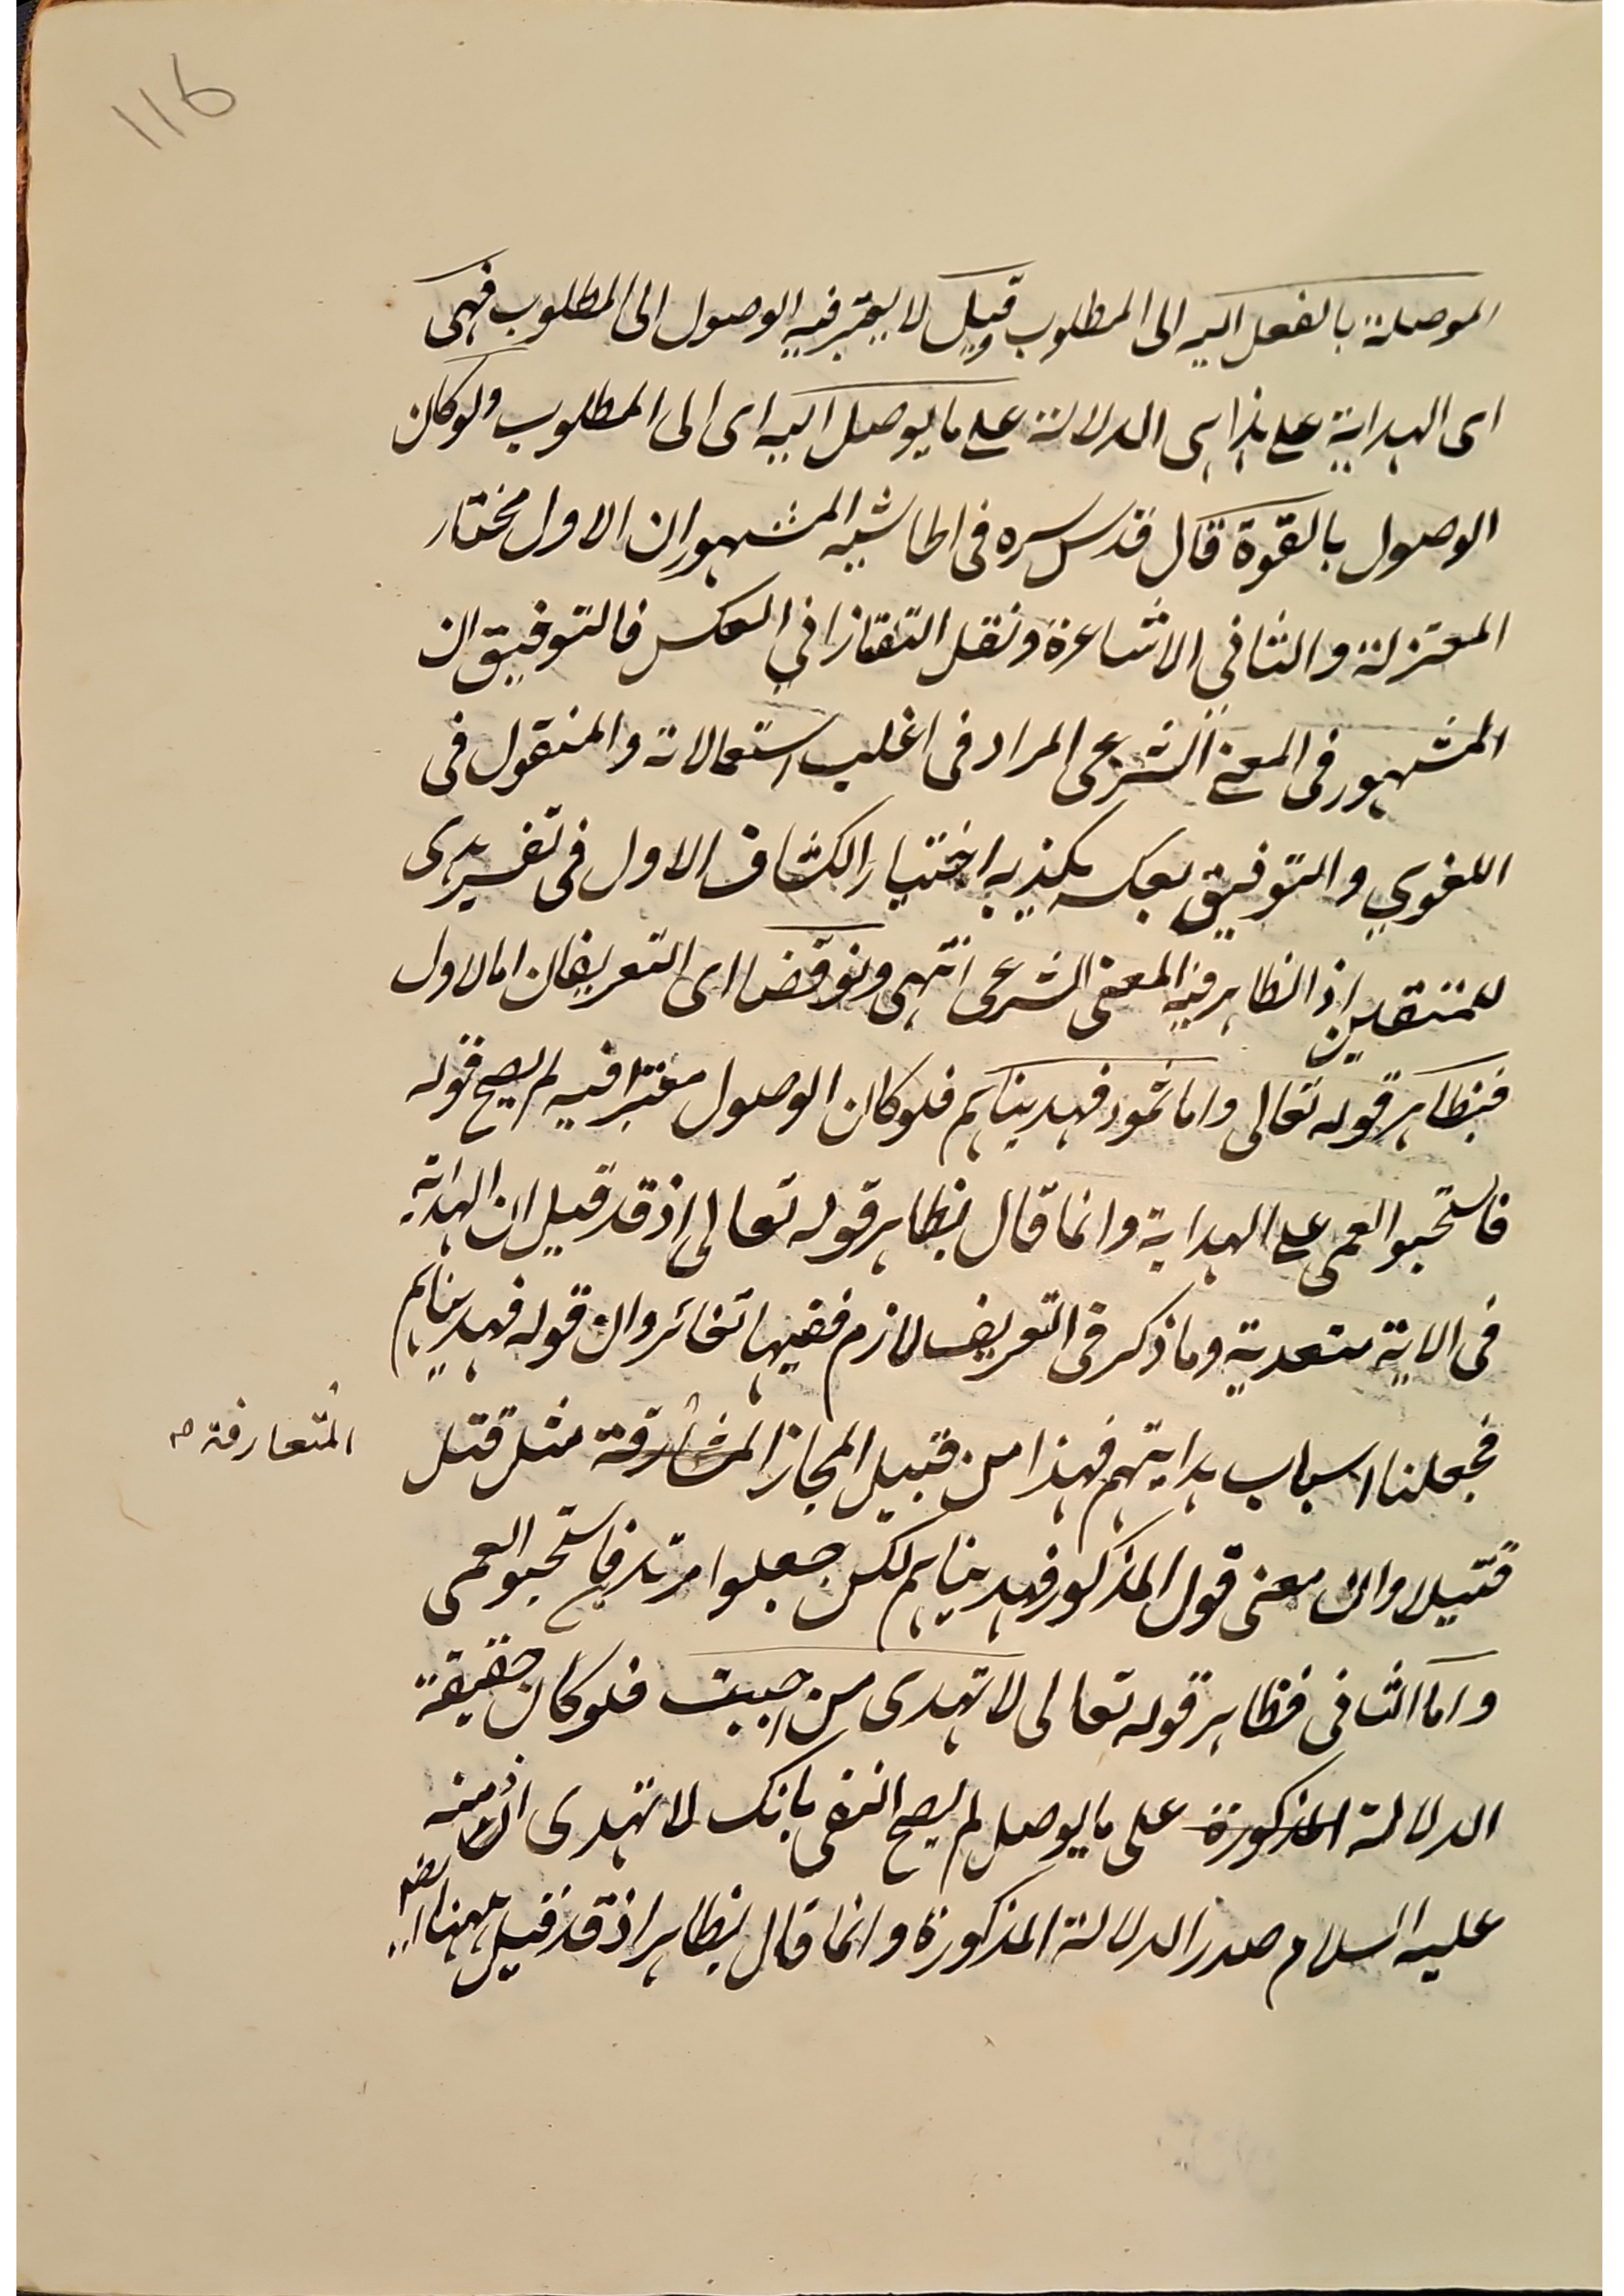 116
الموصلة بالفعل اليه الى المطلوب وقيل لا يعتبر فيه الوصول الى المطلوب فهى
اى الهداية على هذا هى الدلالة على ما يوصل اليه اى الى المطلوب ولو كان
الوصول بالقوة قال قدس سره فى الحاشيه المشهور ان الاول مختار
المعتزلة والثانى الاشاعرة ونقل التفتازانى العكس فالتوفيق ان
المشهور فى المعنى الشرعى المراد فى اغلب استعمالاته والمنقول فى
اللغوي والتوفيق بعكسه يكذبه اختيار الكشاف الاول فى تفسير هدى
للمتقين اذ الظاهر فيه المعنى الشرعى انتهى ونوقض اى التعريفان اما الاول
فبظاهر قوله تعالى واما ثمود فهديناهم فلو كان الوصول معتبرا فيه لم يصح قوله
فاستحبوا العمى على الهداية وانما قال بظاهر قوله تعالى اذ قد قيل ان الهداية
فى الاية متعدية وما ذكر فى التعريف لازم ففيها تغائر وان قوله فهديناهم
فجعلنا اسباب هدايتهم فهذا من قبيل المجاز المشارفة مثل قتل
المتعارفة صح
قتيلا وان معنى قول المذكور فهديناهم لكن جعلوا مرتد فاستحبوا العمى
واما الثانى فظاهر قوله تعالى لا تهدى من احببت فلو كان حقيقة
الدلالة المذكورة على ما يوصل لم يصح النفى بانك لا تهدى اذ منه
عليه السلام صدر الدلالة المذكورة وانما قال بظاهر اذ قد قيل ههنا ايضا